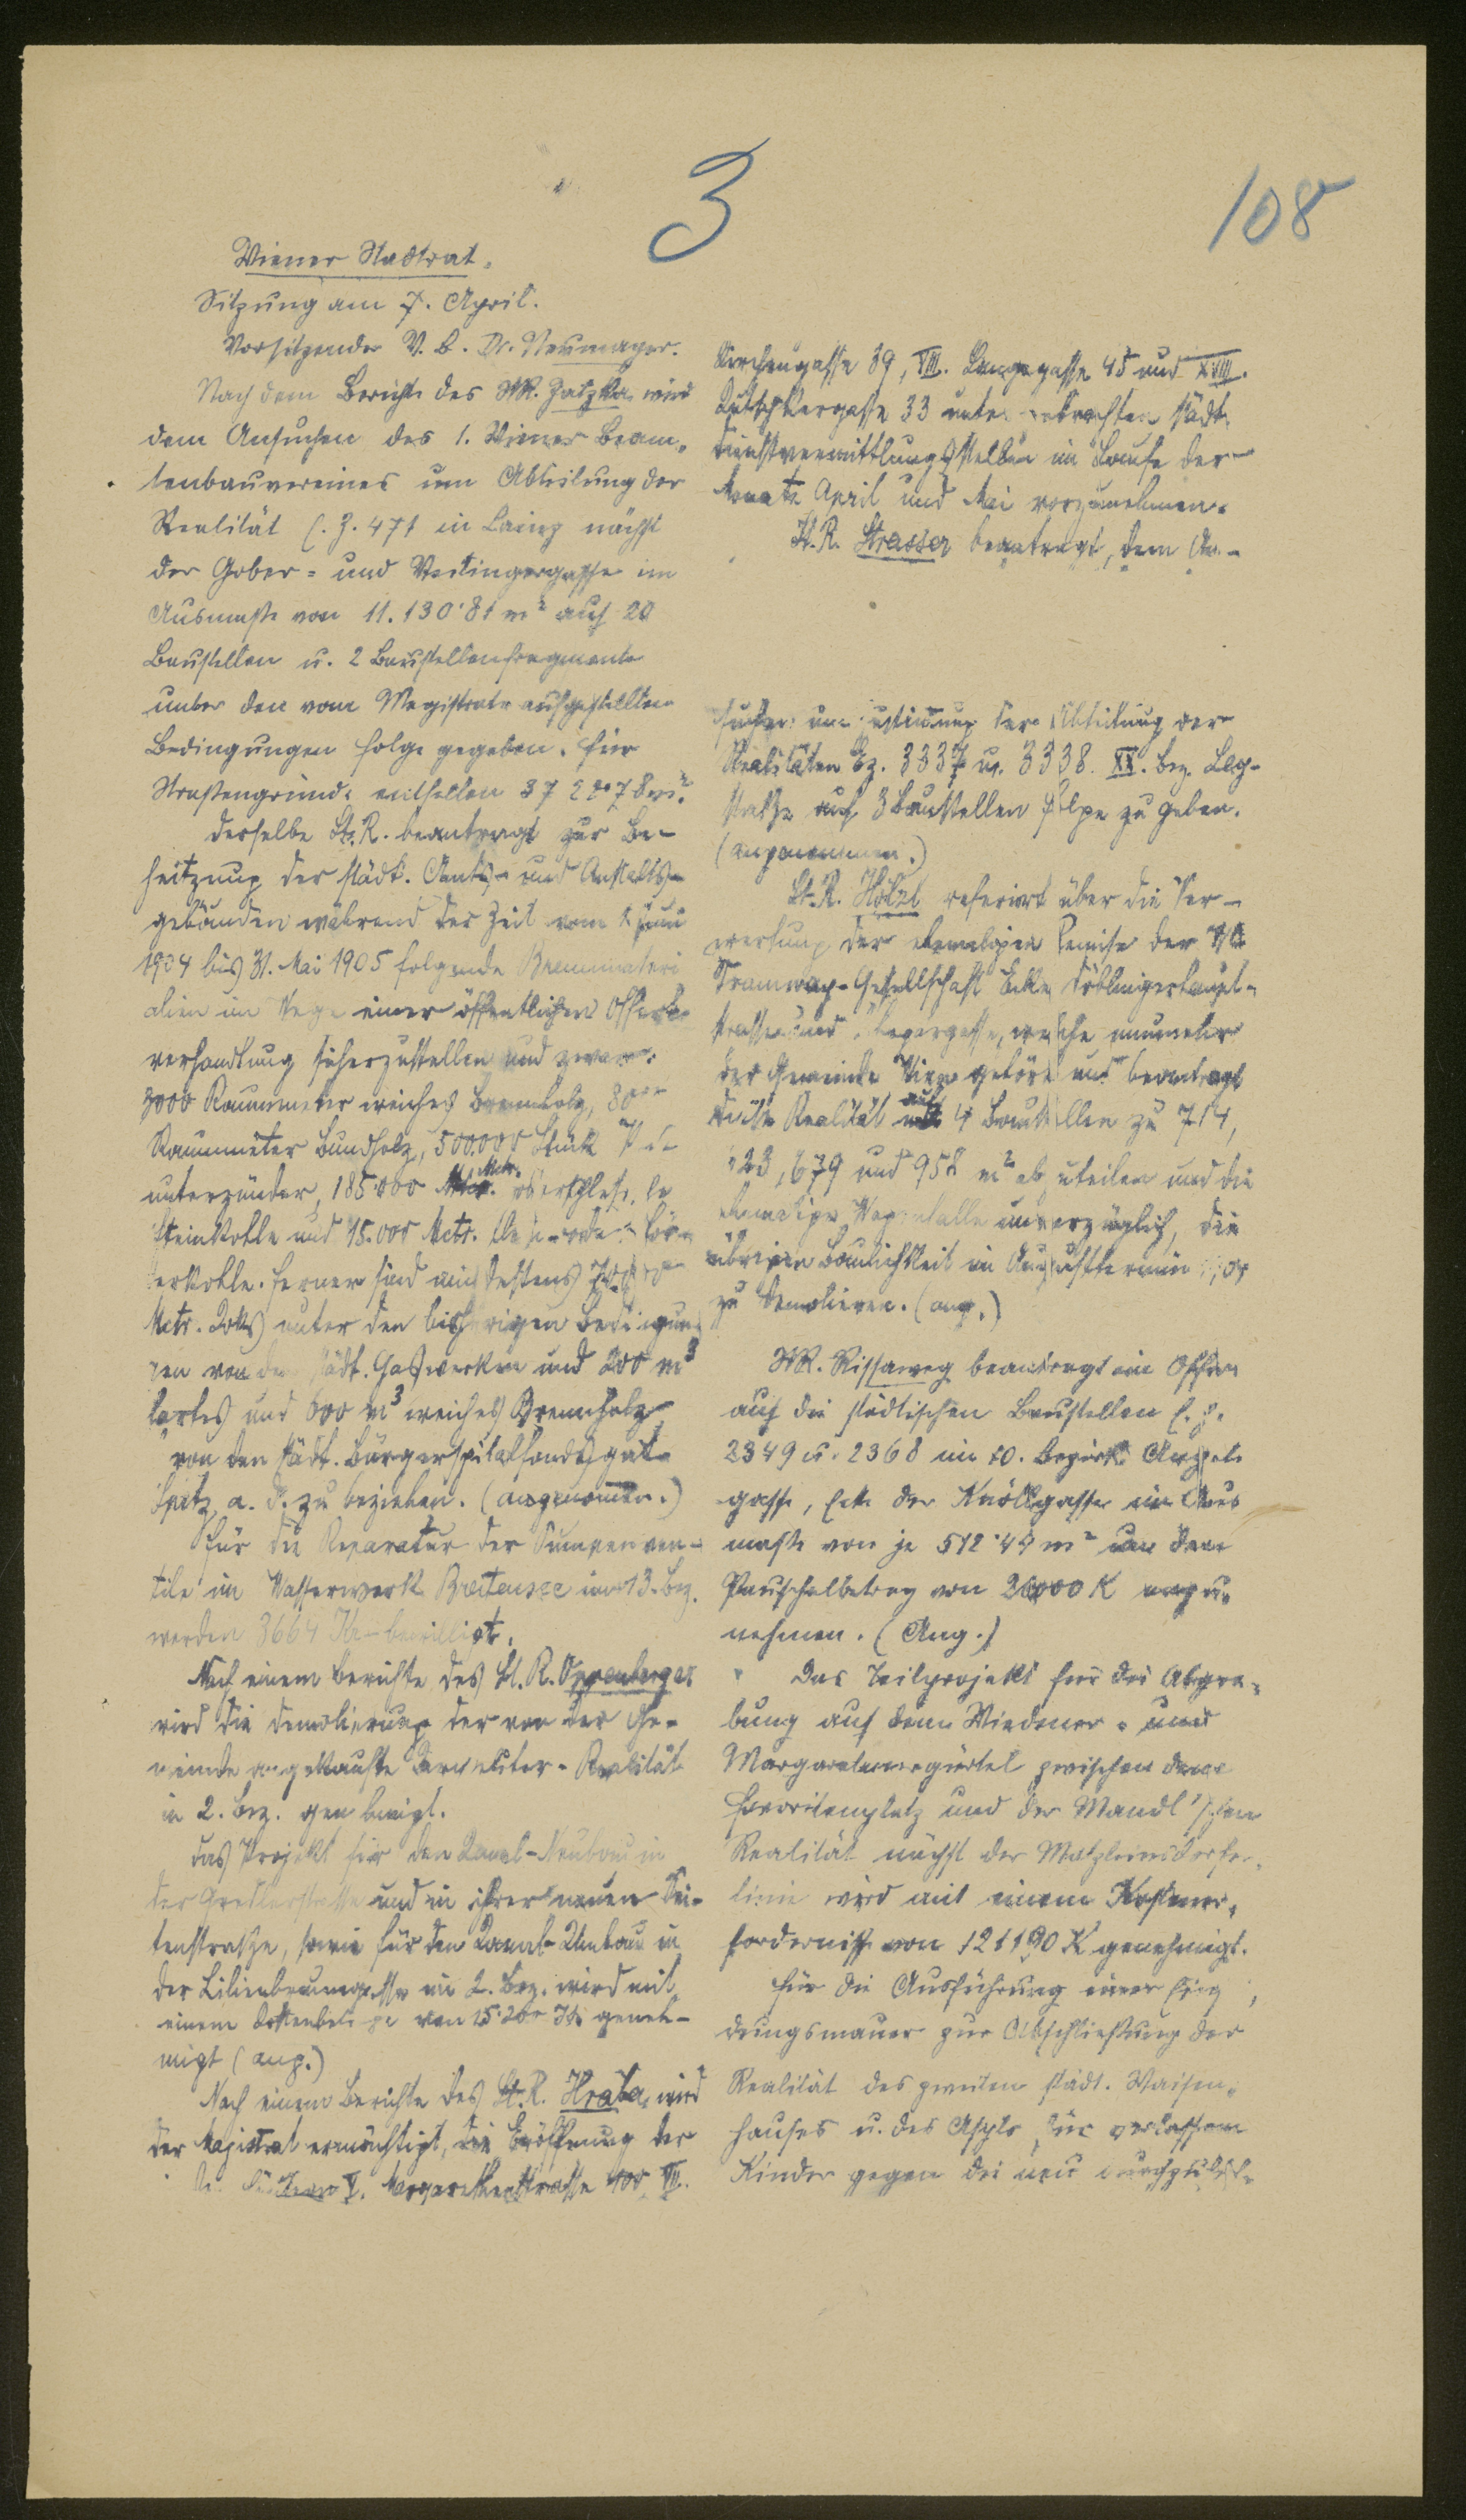 3
108
Wiener Stadtrat.
Sitzung am 7. April.
Vorsitzender V. B. Dr. Neumayer.
Nach dem Berichte des StR. Zatzka wird
dem Ansuchen des 1. Wiener Beam-
tenbauvereines um Abteilung der
Realität E. Z. 471 in Lainz nächst
der Gober- und Veitingergasse im
Ausmaße von 11.130·81 m² auf 20
Baustellen u. 2 Baustellenfragmente
unter den vom Magistrate aufgestellten
Bedingungen Folge gegeben. Für
Straßengrund entfallen 37 78 m².
Derselbe St. R. beantragt zur Be-
heitzung der städt. Amts- und Anstalts-
gebäuden während der Zeit vom 1. Juni
1904 bis 31. Mai 1905 folgende Brennmateri
alien im Wege einer öffentlichen Offert-
verhandlung sicherzustellen und zwar:
3000 Raummeter weiches Brennholz, 80
Raummeter Bundholz, 500.000 Stück
unterzünder, 185·000 Mctr. oberschles.
Steinkohle und 15.000 Mctr.
erkohle. Ferner sind mindestens
Mctr. Koks unter den bisherigen Bedingun
gen von den städt. Gaswerken und 200 m³
hartes und 600 m³ weiches Brennholz
von den städt. Bürgerspitalfondsgut
Spitz a. D. zu beziehen. (angenommen.)
Für die Reparatur der Pumpenven-
tile im Wasserwerk Breitensee im 13. Bez.
werden 3664 Kr. bewilligt.
Nach einem Berichte des St. R. Oppenberger
wird die Demolierung der von der Ge-
meinde angekaufte Karmeliter-Realität
in 2. Bez. genehmigt.
Das Projekt für den Kanal-Neubau in
der Gredlerstrasse und in ihrer neuen Sei-
tenstraße, sowie für den Kanal-Umbau in
der Lilienbrunngasse im 2. Bez. wird mit
einem Kostenbetrage von 15·200 Kr. geneh-
migt (ang.)
Nach einem Berichte des St. R. Hraba wird
der Magistrat ermächtigt, die Eröffnung der
V. Margarethenstrasse 100, VII.
Kirchengasse 39, VIII. Langegasse 45 und XVIII.
Kutschkergasse 33 unter städt.
Dienstvermittlungsstellen im Laufe der
Monate April und Mai vorzunehmen.
St. R. Strasser beantragt, dem An-
suchen um der Abteilung der
Realitäten Ez. 3337 u. 3338 XX. Bez.
straße auf 3 Baustellen Folge zu geben.
(angenommen.)
St. R. Hölzl referirt über die Ver-
wertung der ehemaligen Remise der
Tramway-Gesellschaft Ecke Döblingerhaupt-
strasse und welche nunmehr
der Gemeinde Wien gehört und beantragt
diese Realität auf 4 Baustellen zu 714,
679 und 958 m² abzuteilen und die
ehemalige Wagenhalle unverzüglich, die
übrigen Baulichkeit im Augusttermin
zu demolieren. (ang.)
StR. Rissaweg beantragt ein Offert
auf die städtischen Baustellen E. Z.
2349 u. 2368 im 10. Bezirk
gasse, Ecke der Knöllgasse im Aus
maße von je 512·49 m² um den
Pauschalbetrag von 26000 K anzu-
nehmen. (Ang.)
Das Teilprojekt für die Abgra-
bung auf dem Wiedener- und
Margaretnergürtel zwischen dem
Favoritenplatz und der Mandl'schen
Realität nächst der Matzleinsdorfer-
linie wird mit einem Kostener-
fordernis von 121190 K genehmigt.
Für die Ausführung einer Einfrie-
dungsmauer zur Abschließung der
Realität des zweiten städt. Waisen-
hauses u. des Asyls für verlassene
Kinder gegen die neu